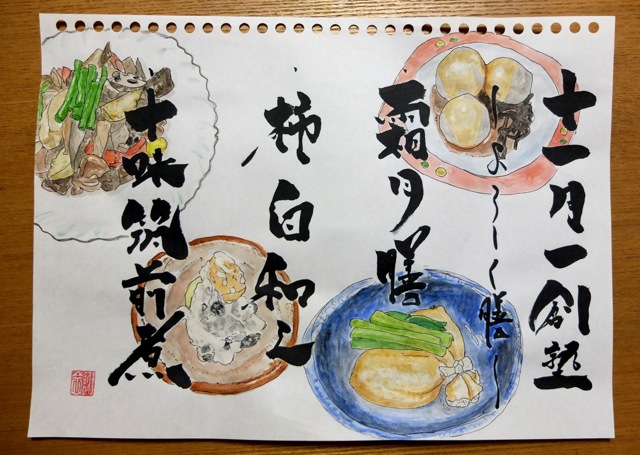 十一月一創塾
〜よろしく膳〜
霜月膳
柿白和え
十味筑前煮